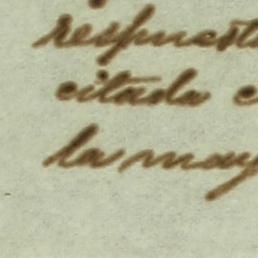 respuesta
citada
la may